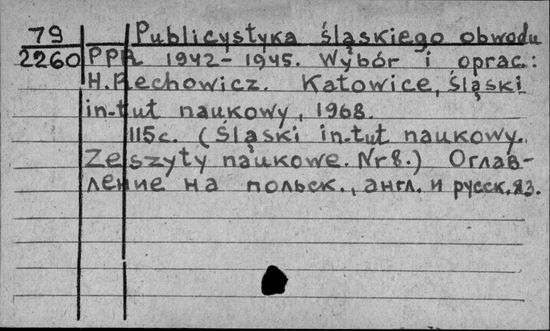 79 Publicystyka śląskiego obwodu
2260 PPR 1942-1945. Wybór i oprac.:
H. Rechowicz. Katowice, Śląski
in-tut naukowy, 1968.
115c. (Śląski in-tut naukowy.
Zeszyty naukowe. Nr 8.) Оглав-
ление на польск., англ. и русск. яз.